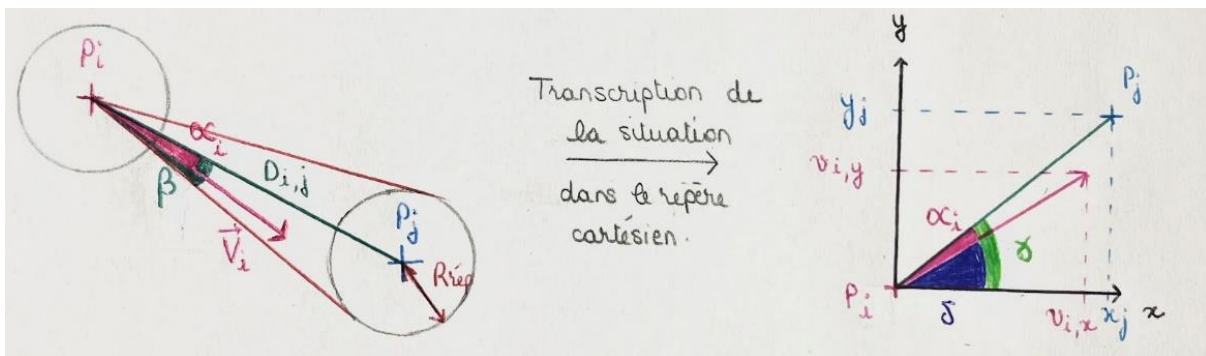 Pi
αi
β
Di,j
Vi
Pj
Rrép
Transcription de
la situation
dans le repère
cartésien.
y
yj
vi,y
Pj
αi
γ
Pi
δ
vi,x
xj
x